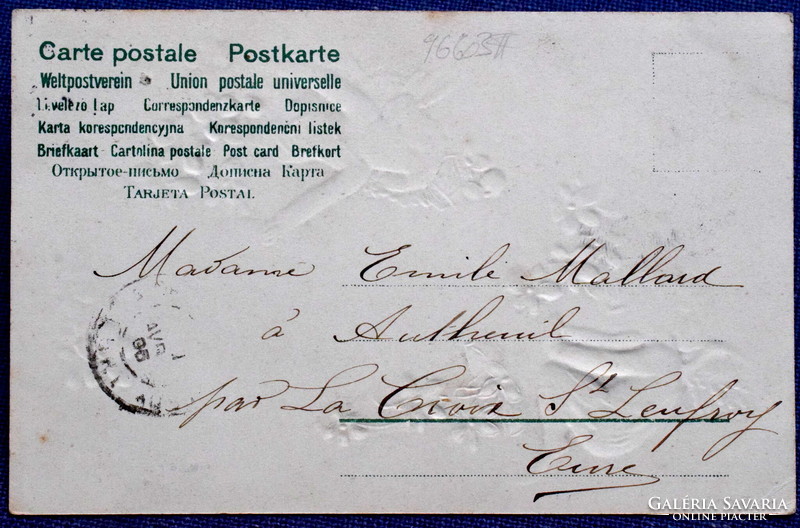 46603TT
Carte postale Postkarte
Weltpostverein Union postale universelle
Levelező Lap Correspondenzkarte Dopisnice
Karta korespondencyjna Korespondenční listek
Briefkaart Cartolina postale Post card Brefkort
Открытое-письмо Дописна Карта
TARJETA POSTAL
Madame Emile Mallard
à Autheuil
par La Croix St Leufroy
Eure
AVR
GALÉRIA SAVARIA
ONLINE PIACTÉR